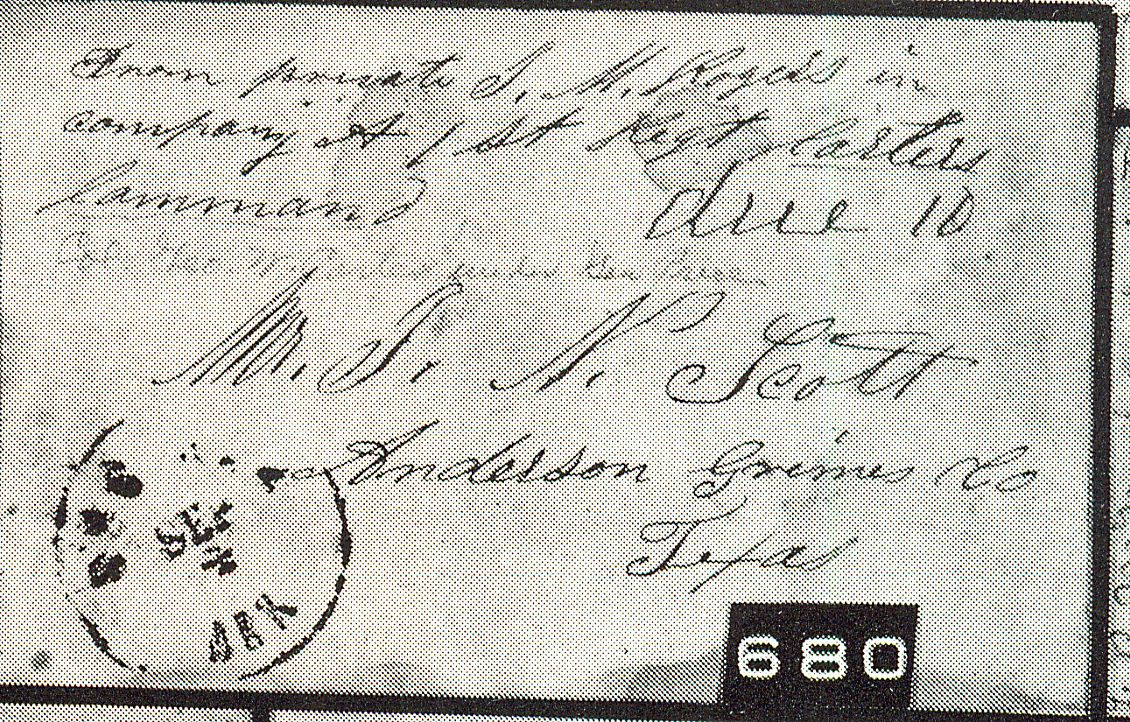 From private S. N. Rogers in
company A 1st Regt Carters
Command
Due 10
Mr. J. N. Scott
Anderson Grimes Co
Texas
SEP
ARK
680